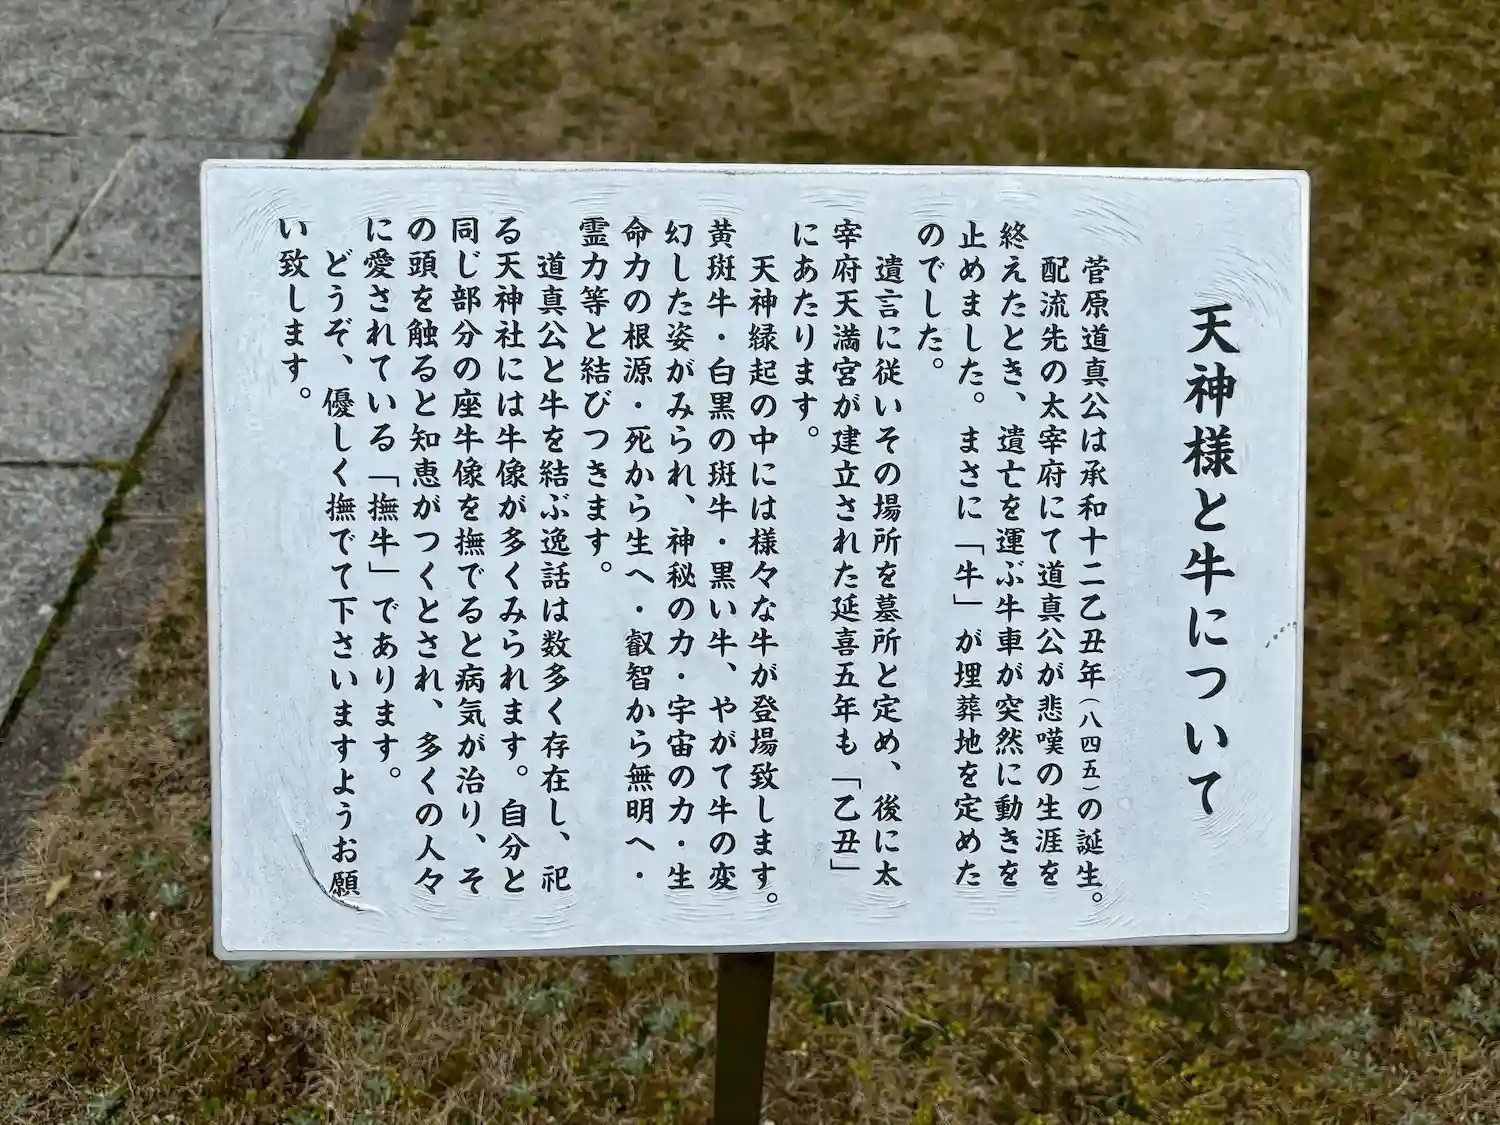 天神様と牛について
菅原道真公は承和十二乙丑年（八四五）の誕生。
配流先の太宰府にて道真公が悲嘆の生涯を
終えたとき、遺亡を運ぶ牛車が突然に動きを
止めました。まさに「牛」が埋葬地を定めた
のでした。
遺言に従いその場所を墓所と定め、後に太
宰府天満宮が建立された延喜五年も「乙丑」
にあたります。
天神縁起の中には様々な牛が登場致します。
黄斑牛・白黒の斑牛・黒い牛、やがて牛の変
幻した姿がみられ、神秘の力・宇宙の力・生
命力の根源・死から生へ・叡智から無明へ・
霊力等と結びつきます。
道真公と牛を結ぶ逸話は数多く存在し、祀
る天神社には牛像が多くみられます。自分と
同じ部分の座牛像を撫でると病気が治り、そ
の頭を触ると知恵がつくとされ、多くの人々
に愛されている「撫牛」であります。
どうぞ、優しく撫でて下さいますようお願
い致します。